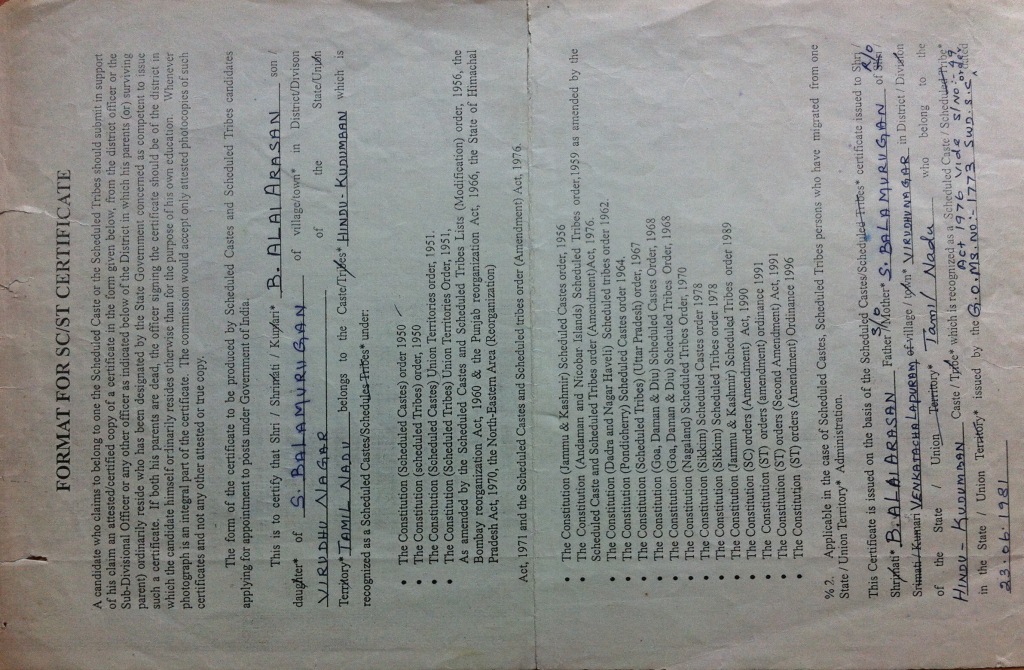 FORMAT FOR SC/ST CERTIFICATE
A candidate who claims to belong to one the Scheduled Caste or the Scheduled Tribes should submit in support
of his claim an attested/certified copy of a certificate in the form given below, from the district officer or the
Sub-Divisional Officer or any other officer as indicated below of the District in which his parents (or) surviving
parent) ordinarily reside who has been designated by the State Government concerned as competent to issue
such a certificate. If both his parents are dead, the officer signing the certificate should be of the district in
which the candidate himself ordinarily resides otherwise than for the purpose of his own education. Whenever
photograph is an integral part of the certificate. The commission would accept only attested photocopies of such
certificates and not any other attested or true copy.
The form of the certificate to be produced by Scheduled Castes and Scheduled Tribes candidates
applying for appointment to posts under Government of India.
This is to certify that Shri / Shrimati / Kumari* B. ALAI ARASAN son /
daughter* of S. BALAMURUGAN of village/town* in District/Divison
VIRUDHU NAGAR of the State/Union
Territory* TAMIL NADU belongs to the Caste/Tribes* HINDU - KUDUMBAN which is
recognized as a Scheduled Castes/Schedules Tribes* under:
• The Constitution (Scheduled Castes) order 1950
• The Constitution (scheduled Tribes) order, 1950
• The Constitution (Scheduled Castes) Union Territories order, 1951.
• The Constitution (Scheduled Tribes) Union Territories Order, 1951,
As amended by the Scheduled Castes and Scheduled Tribes Lists (Modification) order, 1956, the
Bombay reorganization Act, 1960 & the Punjab reorganization Act, 1966, the State of Himachal
Pradesh Act, 1970, the North-Eastern Area (Reorganization)
Act, 1971 and the Scheduled Castes and Scheduled tribes order (Amendment) Act, 1976.
• The Constitution (Jammu & Kashmir) Scheduled Castes order, 1956
• The Constitution (Andaman and Nicobar Islands) Scheduled Tribes order,1959 as amended by the
Scheduled Caste and Scheduled Tribes order (Amendment)Act, 1976.
• The Constitution (Dadra and Nagar Haveli) Scheduled tribes order 1962.
• The Constitution (Pondicherry) Scheduled Castes order 1964.
• The Constitution (Scheduled Tribes) (Uttar Pradesh) order, 1967
• The Constitution (Goa, Daman & Diu) Scheduled Castes Order, 1968
• The Constitution (Goa, Daman & Diu) Scheduled Tribes Order, 1968
• The Constitution (Nagaland) Scheduled Tribes Order, 1970
• The Constitution (Sikkim) Scheduled Castes order 1978
• The Constitution (Sikkim) Scheduled Tribes order 1978
• The Constitution (Jammu & Kashmir) Scheduled Tribes order 1989
• The Constitution (SC) orders (Amendment) Act, 1990
• The Constitution (ST) orders (amendment) ordinance 1991
• The Constitution (ST) orders (Second Amendment) Act, 1991
• The Constitution (ST) orders (Amendment) Ordinance 1996
% 2. Applicable in the case of Scheduled Castes, Scheduled Tribes persons who have migrated from one
State / Union Territory* Administration.
This Certificate is issued on the basis of the Scheduled Castes/Scheduled Tribes* certificate issued to Shri /
S/o R/o
Shrimati* B. ALAI ARASAN Father/Mother* S. BALAMURUGAN of Shri /
Srimati / Kumari VENKATACHALAPURAM of village / town* VIRUDHUNAGAR in District / Division
of the State / Union Territory* Tamil Nadu who belong to the
HINDU - KUDUMBAN Caste / Tribe* which is recognized as a Scheduled Caste / Scheduled Tribe*
Act 1976 Vide S/No:- 49 order
in the State / Union Territory* issued by the G.O.MS.NO:- 1773 SWD.S.C dated
23.06.1981